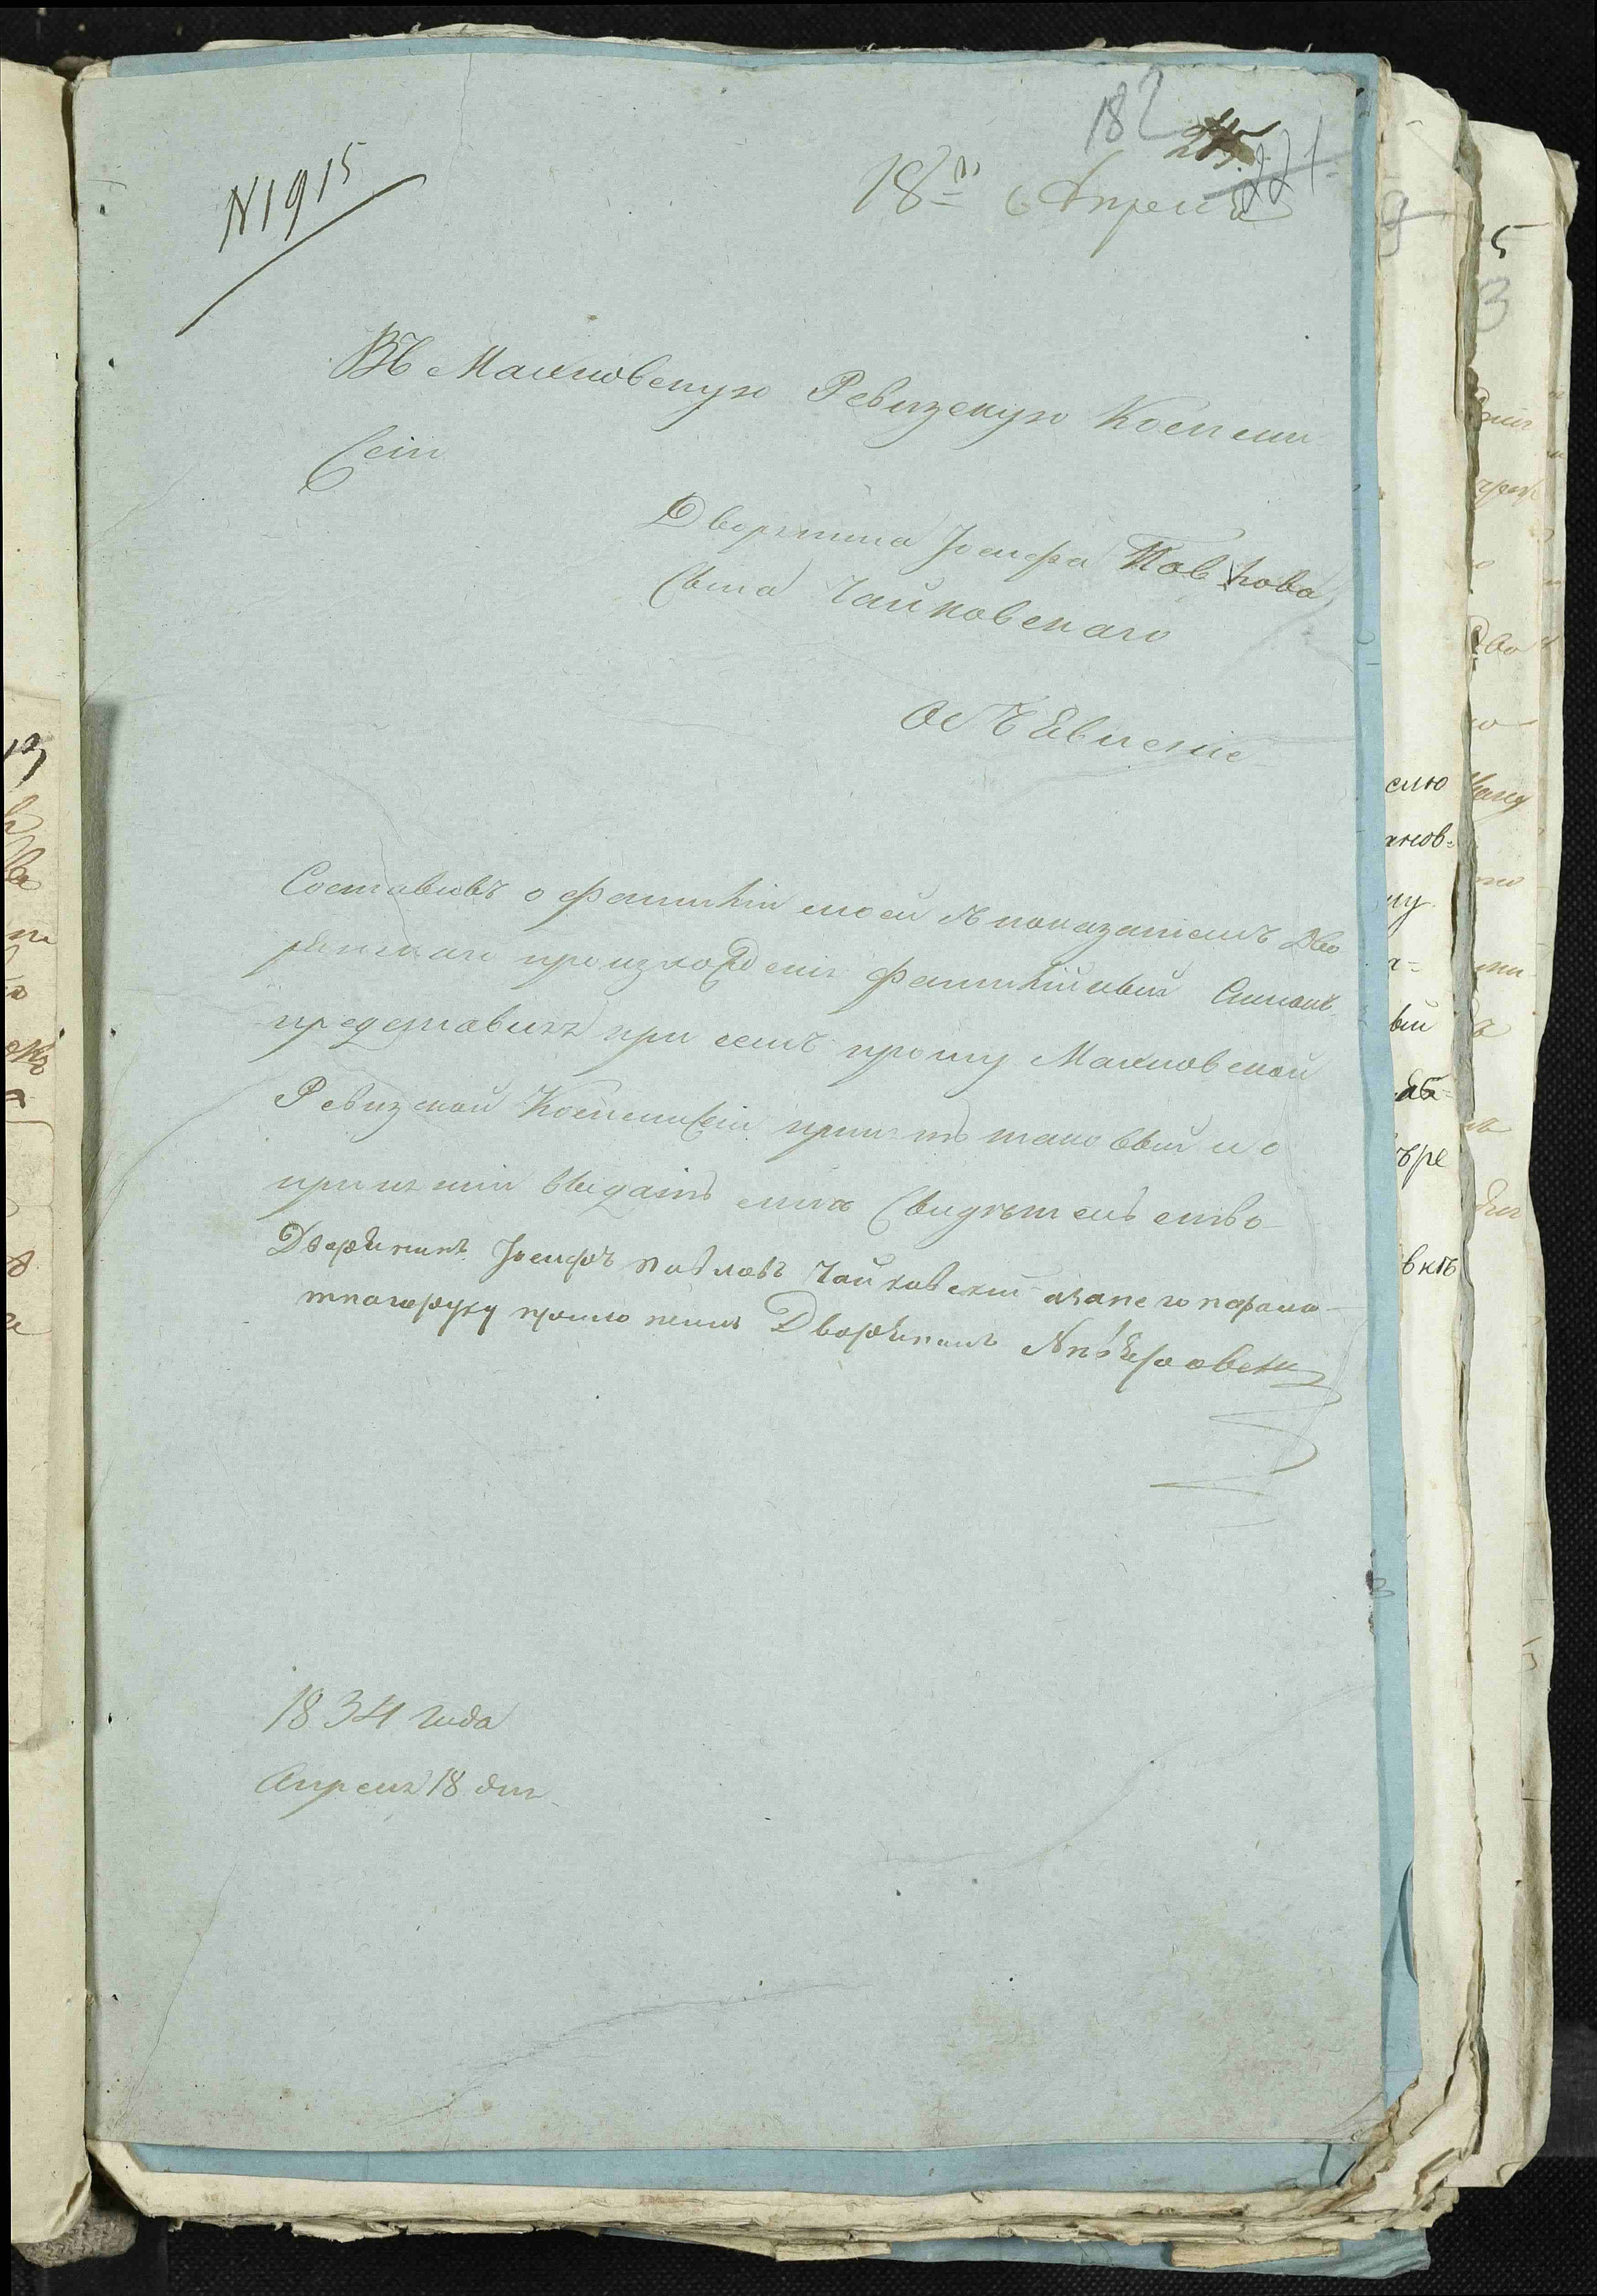 182
221
N 1915
18го Апреля
Въ Махновскую Ревизскую Комми
сію
Дворянина Іосифа Павлова
Сына Чайковскаго
Объявленіе
Составивъ о фамиліи моей съ показаніемъ Дво
рянскаго произхожденія фамилійный Списокъ
представляя при семъ прошу Махновской
Ревизской Коммисіи принять таковый и о
принятіи выдать мнѣ Свидѣтельство
Дворянинъ Іосифъ Павловъ Чайковскій а за него неграмо
тнаго руку приложилъ Дворянинъ
1834 года
Апреля 18 дня